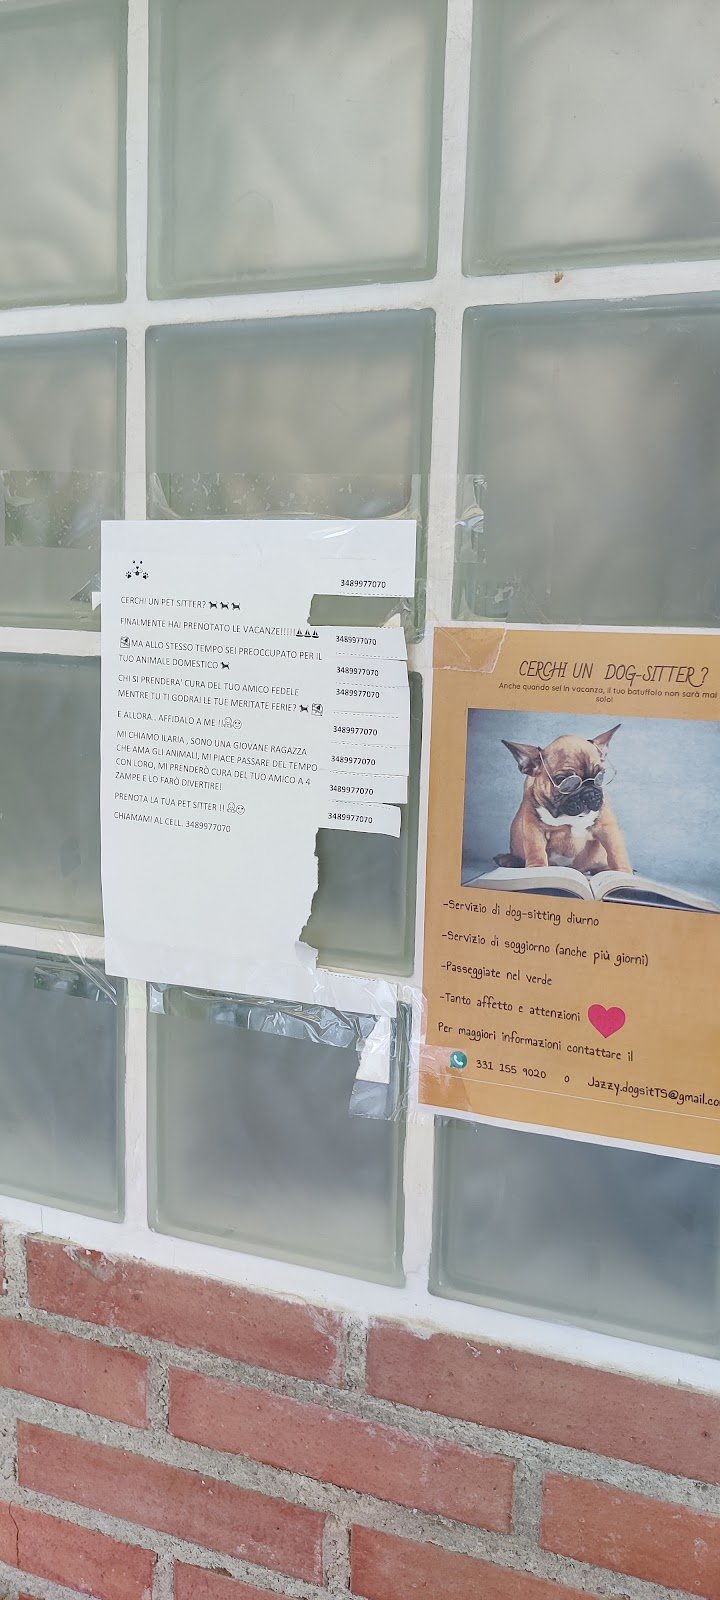 CERCHI UN PET SITTER?
FINALMENTE HAI PRENOTATO LE VACANZE!!!!!
MA ALLO STESSO TEMPO SEI PREOCCUPATO PER IL
TUO ANIMALE DOMESTICO
CHI SI PRENDERA' CURA DEL TUO AMICO FEDELE
MENTRE TU TI GODRAI LE TUE MERITATE FERIE?
E ALLORA.. AFFIDALO A ME !!
MI CHIAMO ILARIA , SONO UNA GIOVANE RAGAZZA
CHE AMA GLI ANIMALI, MI PIACE PASSARE DEL TEMPO
CON LORO, MI PRENDERÒ CURA DEL TUO AMICO A 4
ZAMPE E LO FARÒ DIVERTIRE!
PRENOTA LA TUA PET SITTER !!
CHIAMAMI AL CELL. 3489977070
3489977070
3489977070
3489977070
3489977070
3489977070
3489977070
3489977070
3489977070
CERCHI UN DOG-SITTER?
Anche quando sei in vacanza, il tuo batuffolo non sarà mai
solo!
-Servizio di dog-sitting diurno
-Servizio di soggiorno (anche più giorni)
-Passeggiate nel verde
-Tanto affetto e attenzioni
Per maggiori informazioni contattare il
331 155 9020 o Jazzy.dogsitTS@gmail.co